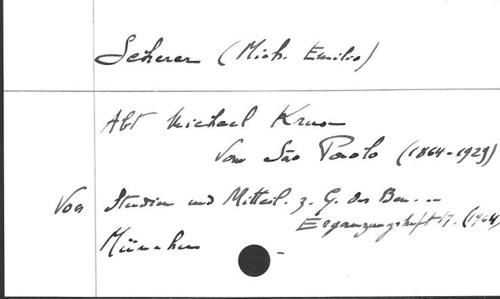 Scherer (Mich. Emilio)
Abt Michael Kruse
von São Paolo (1864-1929)
Studien und Mitteil. z. G. des Ben. ...
Ergänzungsheft 17. (1964)
München